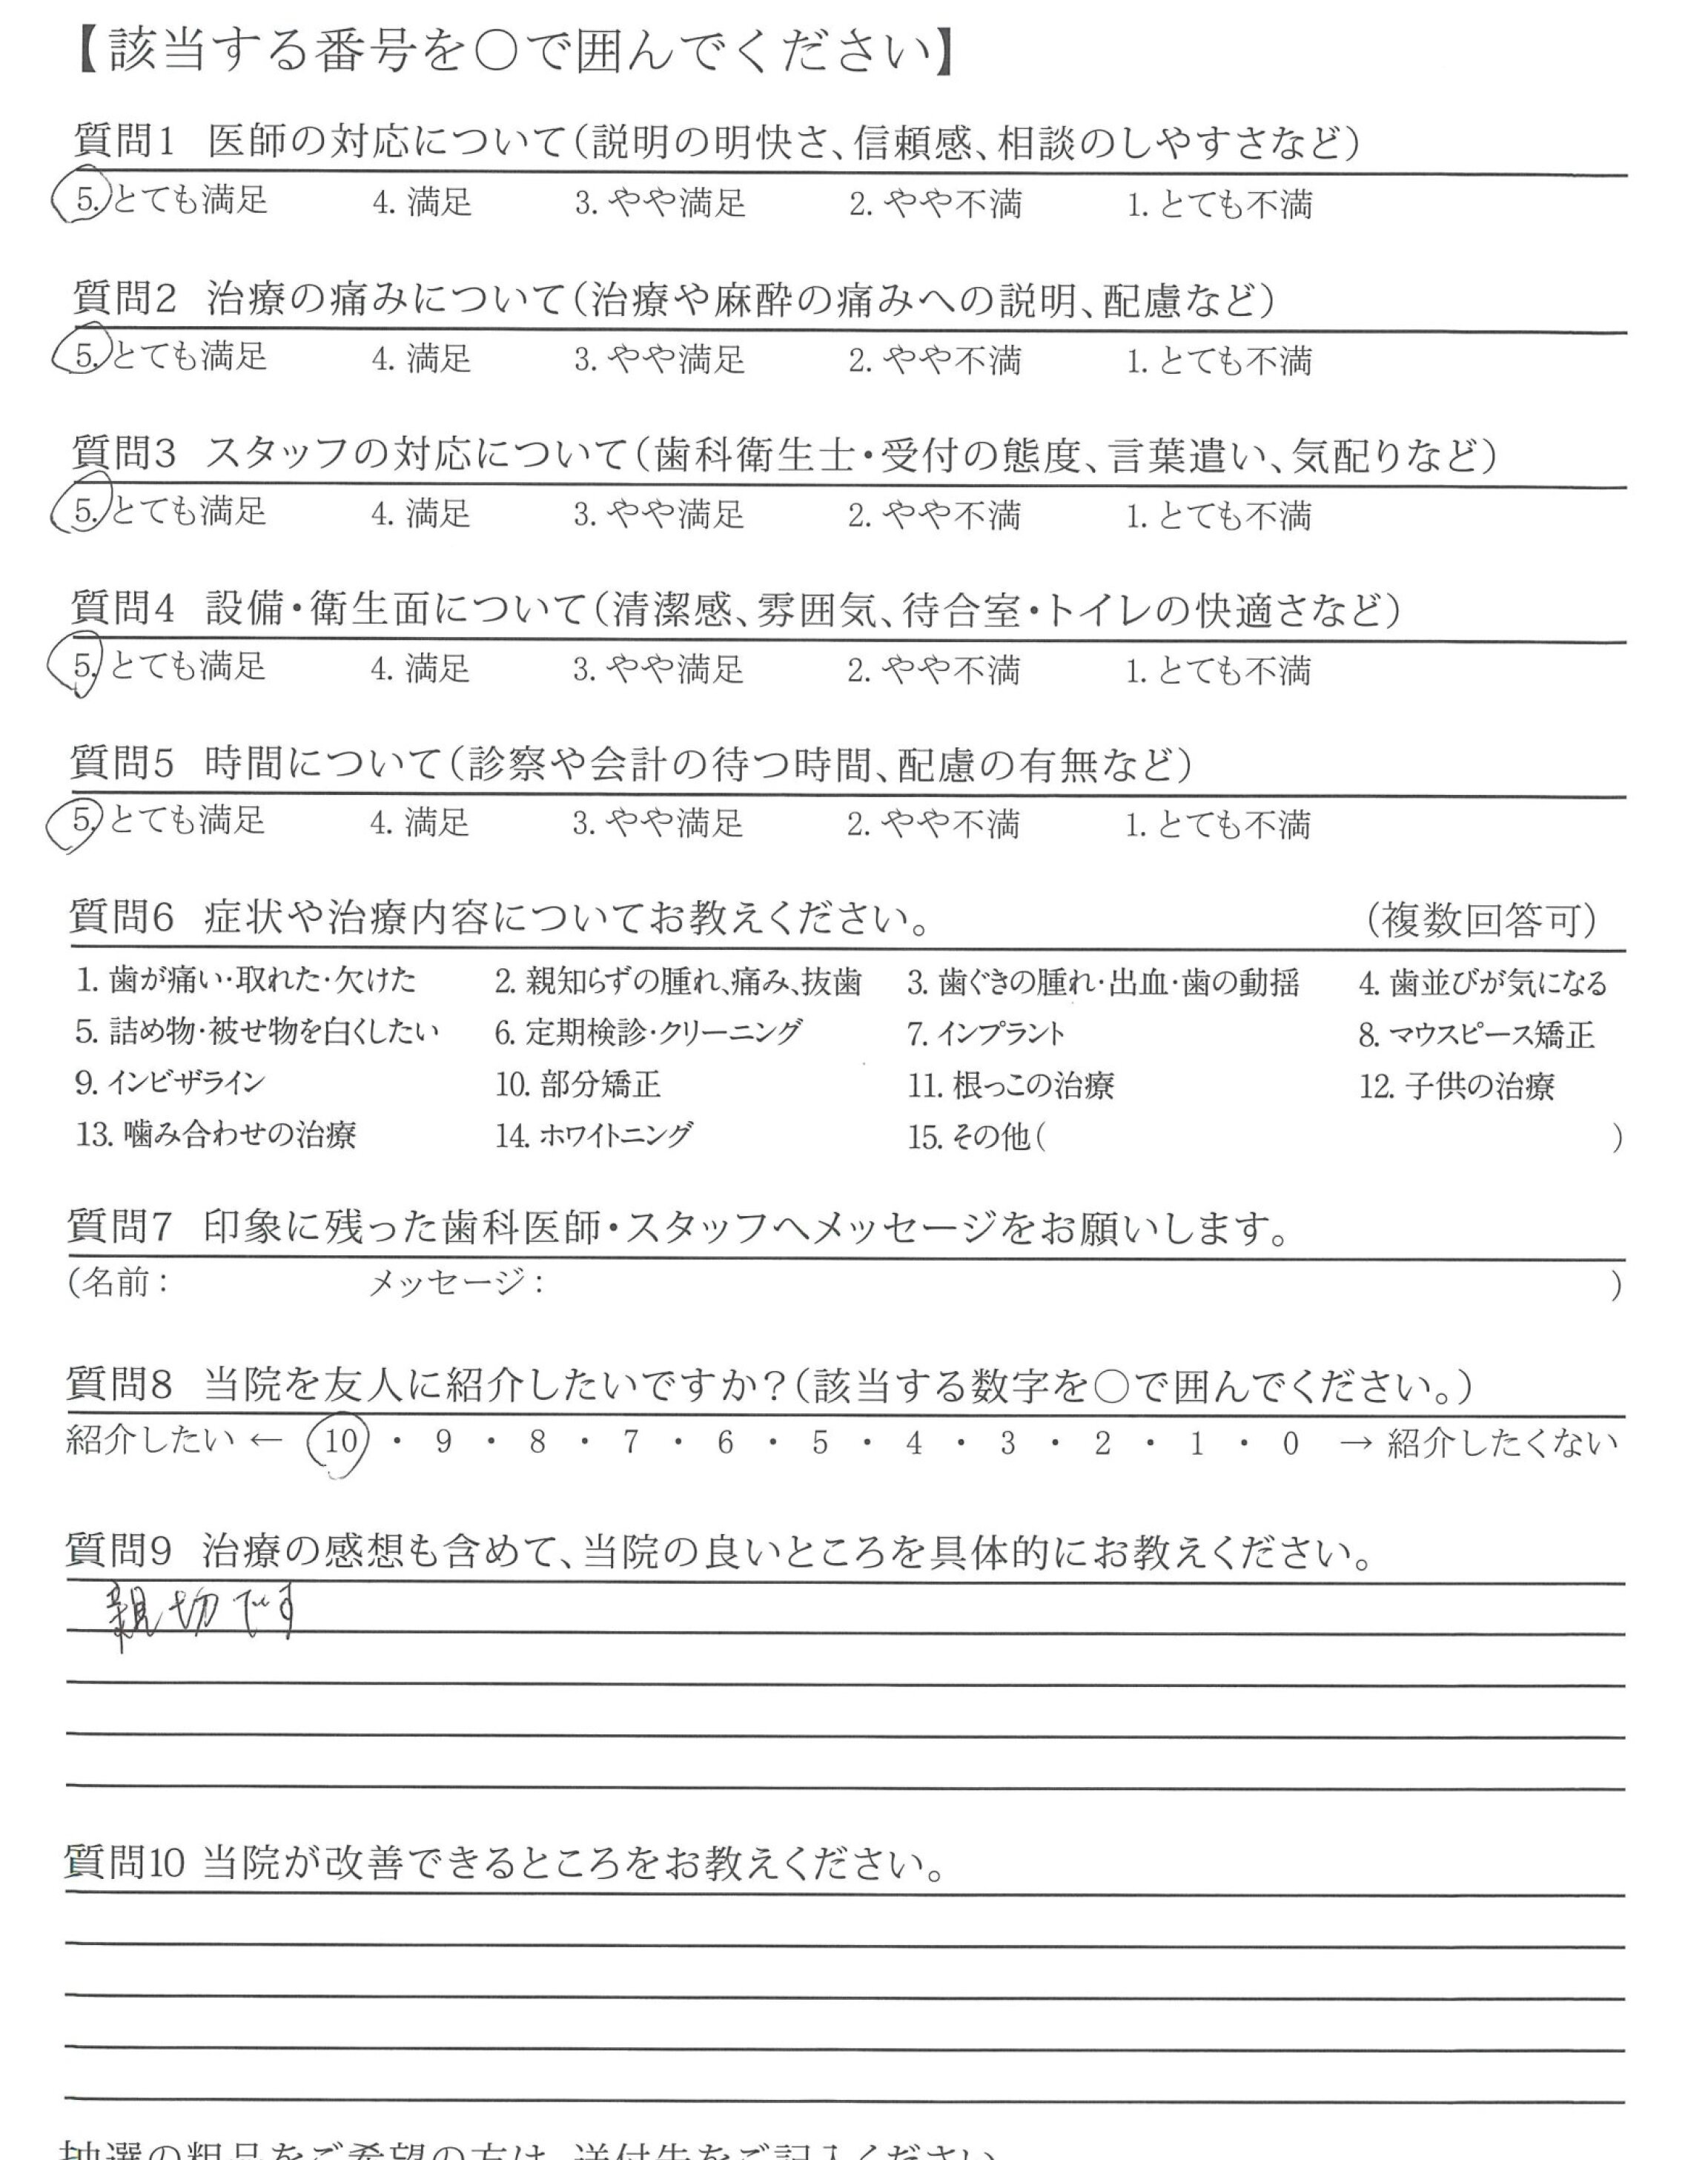 【該当する番号を○で囲んでください】
質問1 医師の対応について(説明の明快さ、信頼感、相談のしやすさなど)
5. とても満足 4. 満足 3. やや満足 2. やや不満 1. とても不満
質問2 治療の痛みについて(治療や麻酔の痛みへの説明、配慮など)
5. とても満足 4. 満足 3. やや満足 2. やや不満 1. とても不満
質問3 スタッフの対応について(歯科衛生士・受付の態度、言葉遣い、気配りなど)
5. とても満足 4. 満足 3. やや満足 2. やや不満 1. とても不満
質問4 設備・衛生面について(清潔感、雰囲気、待合室・トイレの快適さなど)
5. とても満足 4. 満足 3. やや満足 2. やや不満 1. とても不満
質問5 時間について(診察や会計の待つ時間、配慮の有無など)
5. とても満足 4. 満足 3. やや満足 2. やや不満 1. とても不満
質問6 症状や治療内容についてお教えください。 (複数回答可)
1. 歯が痛い・取れた・欠けた 2. 親知らずの腫れ、痛み、抜歯 3. 歯ぐきの腫れ・出血・歯の動揺 4. 歯並びが気になる
5. 詰め物・被せ物を白くしたい 6. 定期検診・クリーニング 7. インプラント 8. マウスピース矯正
9. インビザライン 10. 部分矯正 11. 根っこの治療 12. 子供の治療
13. 噛み合わせの治療 14. ホワイトニング 15. その他( )
質問7 印象に残った歯科医師・スタッフへメッセージをお願いします。
(名前: メッセージ: )
質問8 当院を友人に紹介したいですか?(該当する数字を○で囲んでください。)
紹介したい ← 10 ・ 9 ・ 8 ・ 7 ・ 6 ・ 5 ・ 4 ・ 3 ・ 2 ・ 1 ・ 0 → 紹介したくない
質問9 治療の感想も含めて、当院の良いところを具体的にお教えください。
親切です
質問10 当院が改善できるところをお教えください。
抽選の粗品をご希望の方は、送付先をご記入ください